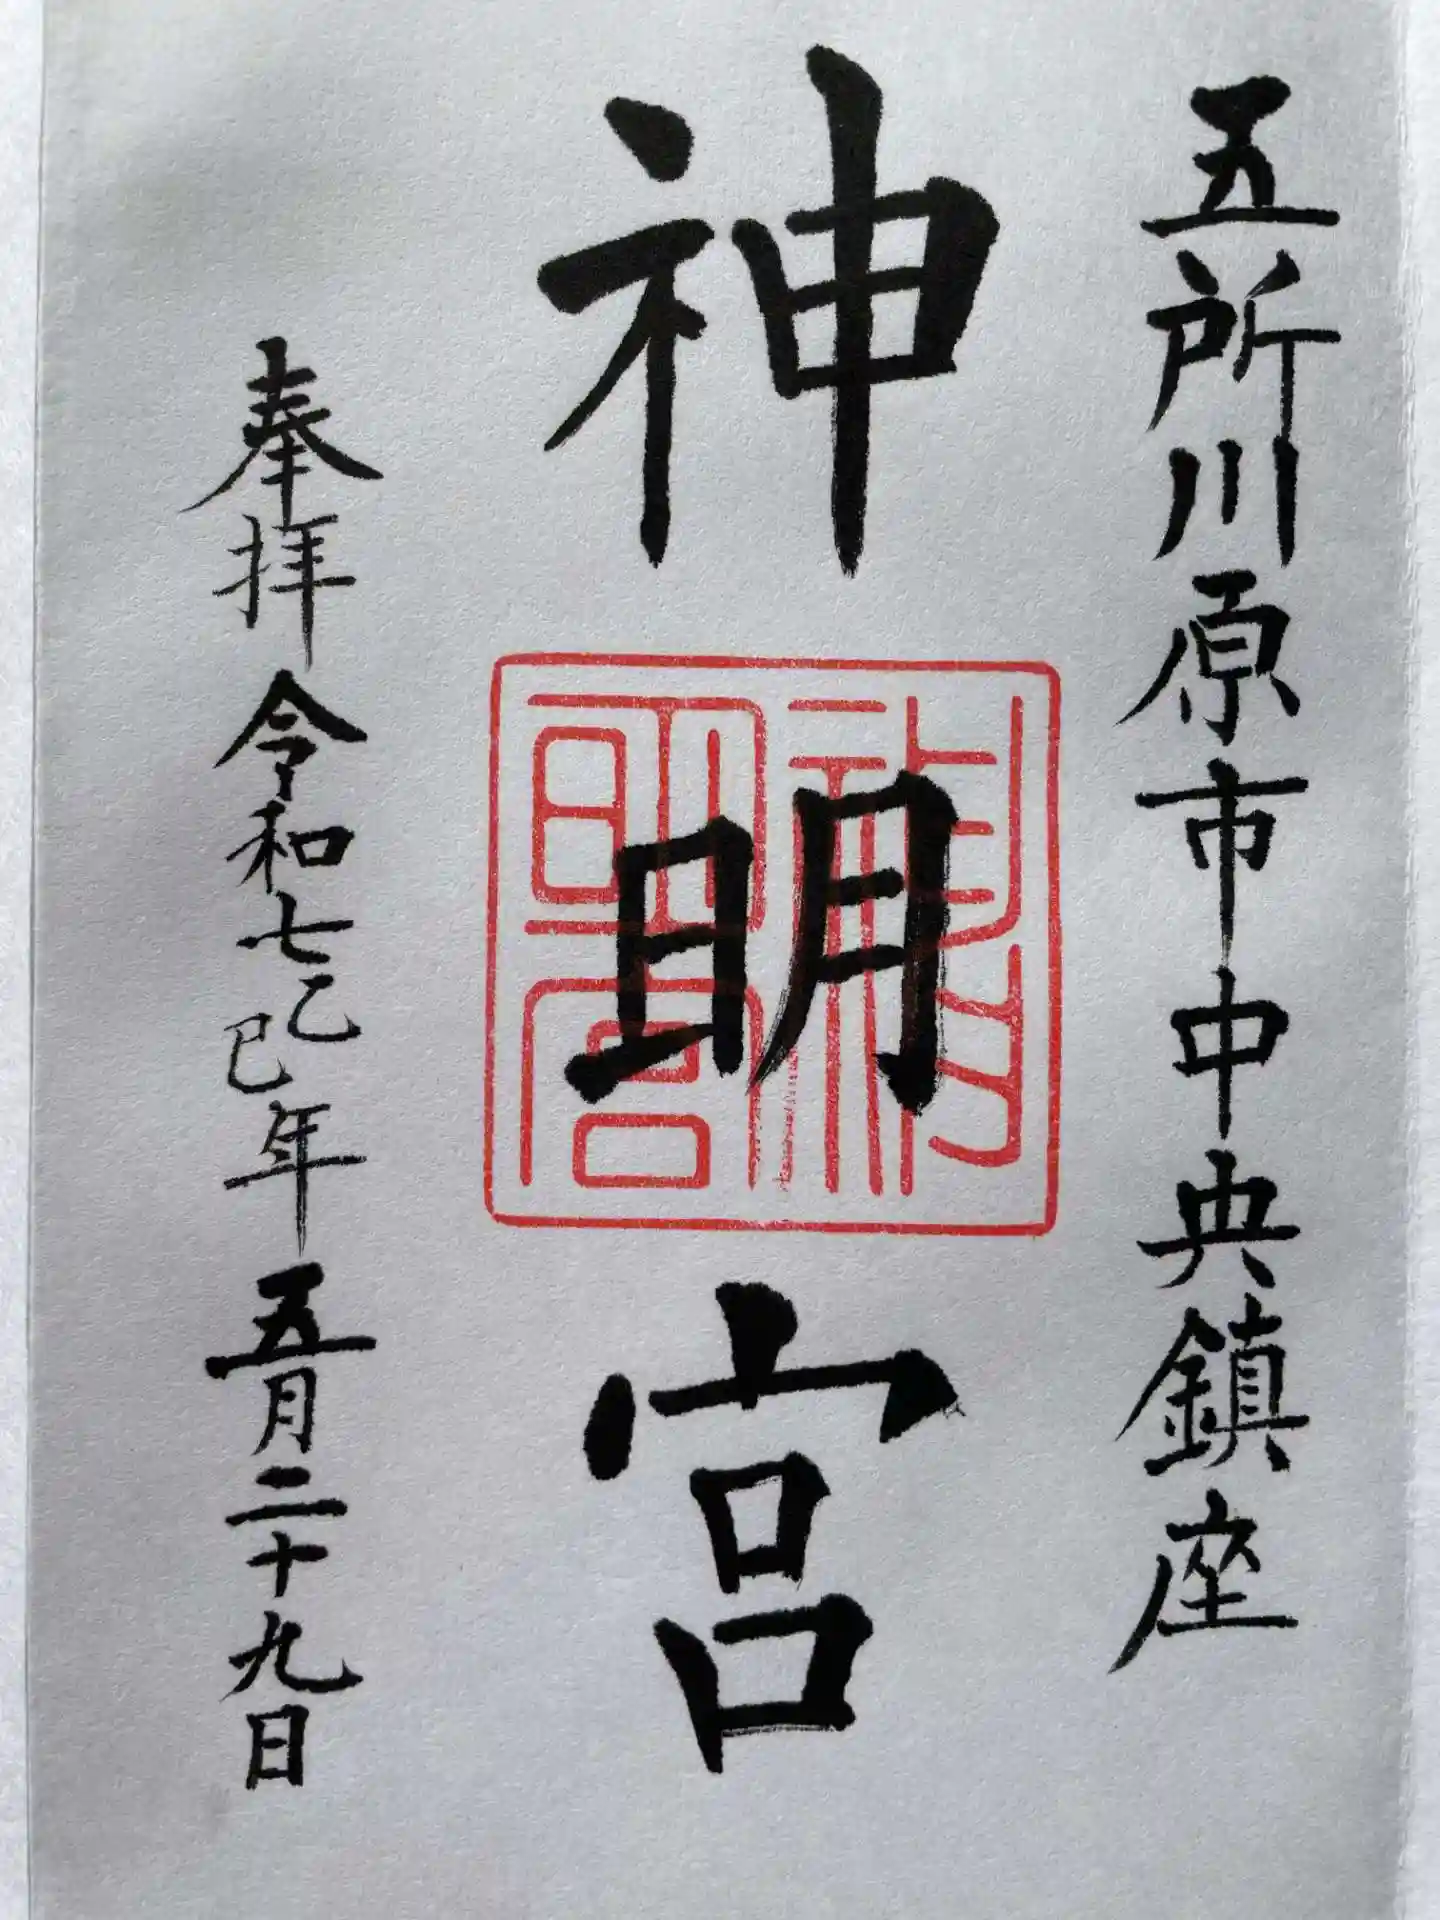 五所川原市中央鎮座
神明宮
奉拝 令和七乙巳年五月二十九日